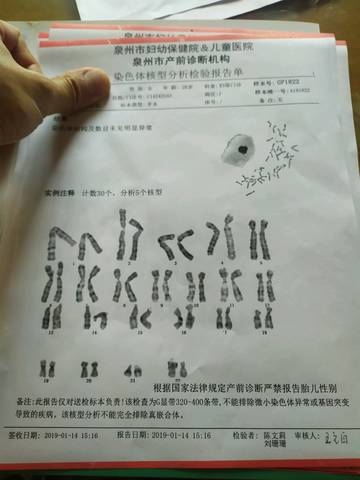 泉州市妇幼保健院&儿童医院
泉州市产前诊断机构
染色体核型分析检验报告单
样本号: CP1822
标本类型: 羊水
床号: /
备注: 无
染色体结构及数目未见明显异常
实例注释 计数30个, 分析5个核型
1 2 3 4 5
13 14 15 16 17 18
19 20 21 22
根据国家法律规定产前诊断严禁报告胎儿性别
备注:此报告仅对送检标本负责!该检查为G显带320-400条带,不能排除微小染色体异常或基因突变
导致的疾病。该核型分析不能完全排除真嵌合体。
签收日期: 2019-01-14 15:16 报告日期: 2019-01-14 15:16 检验者: 陈文莉 审核人:
刘珊珊